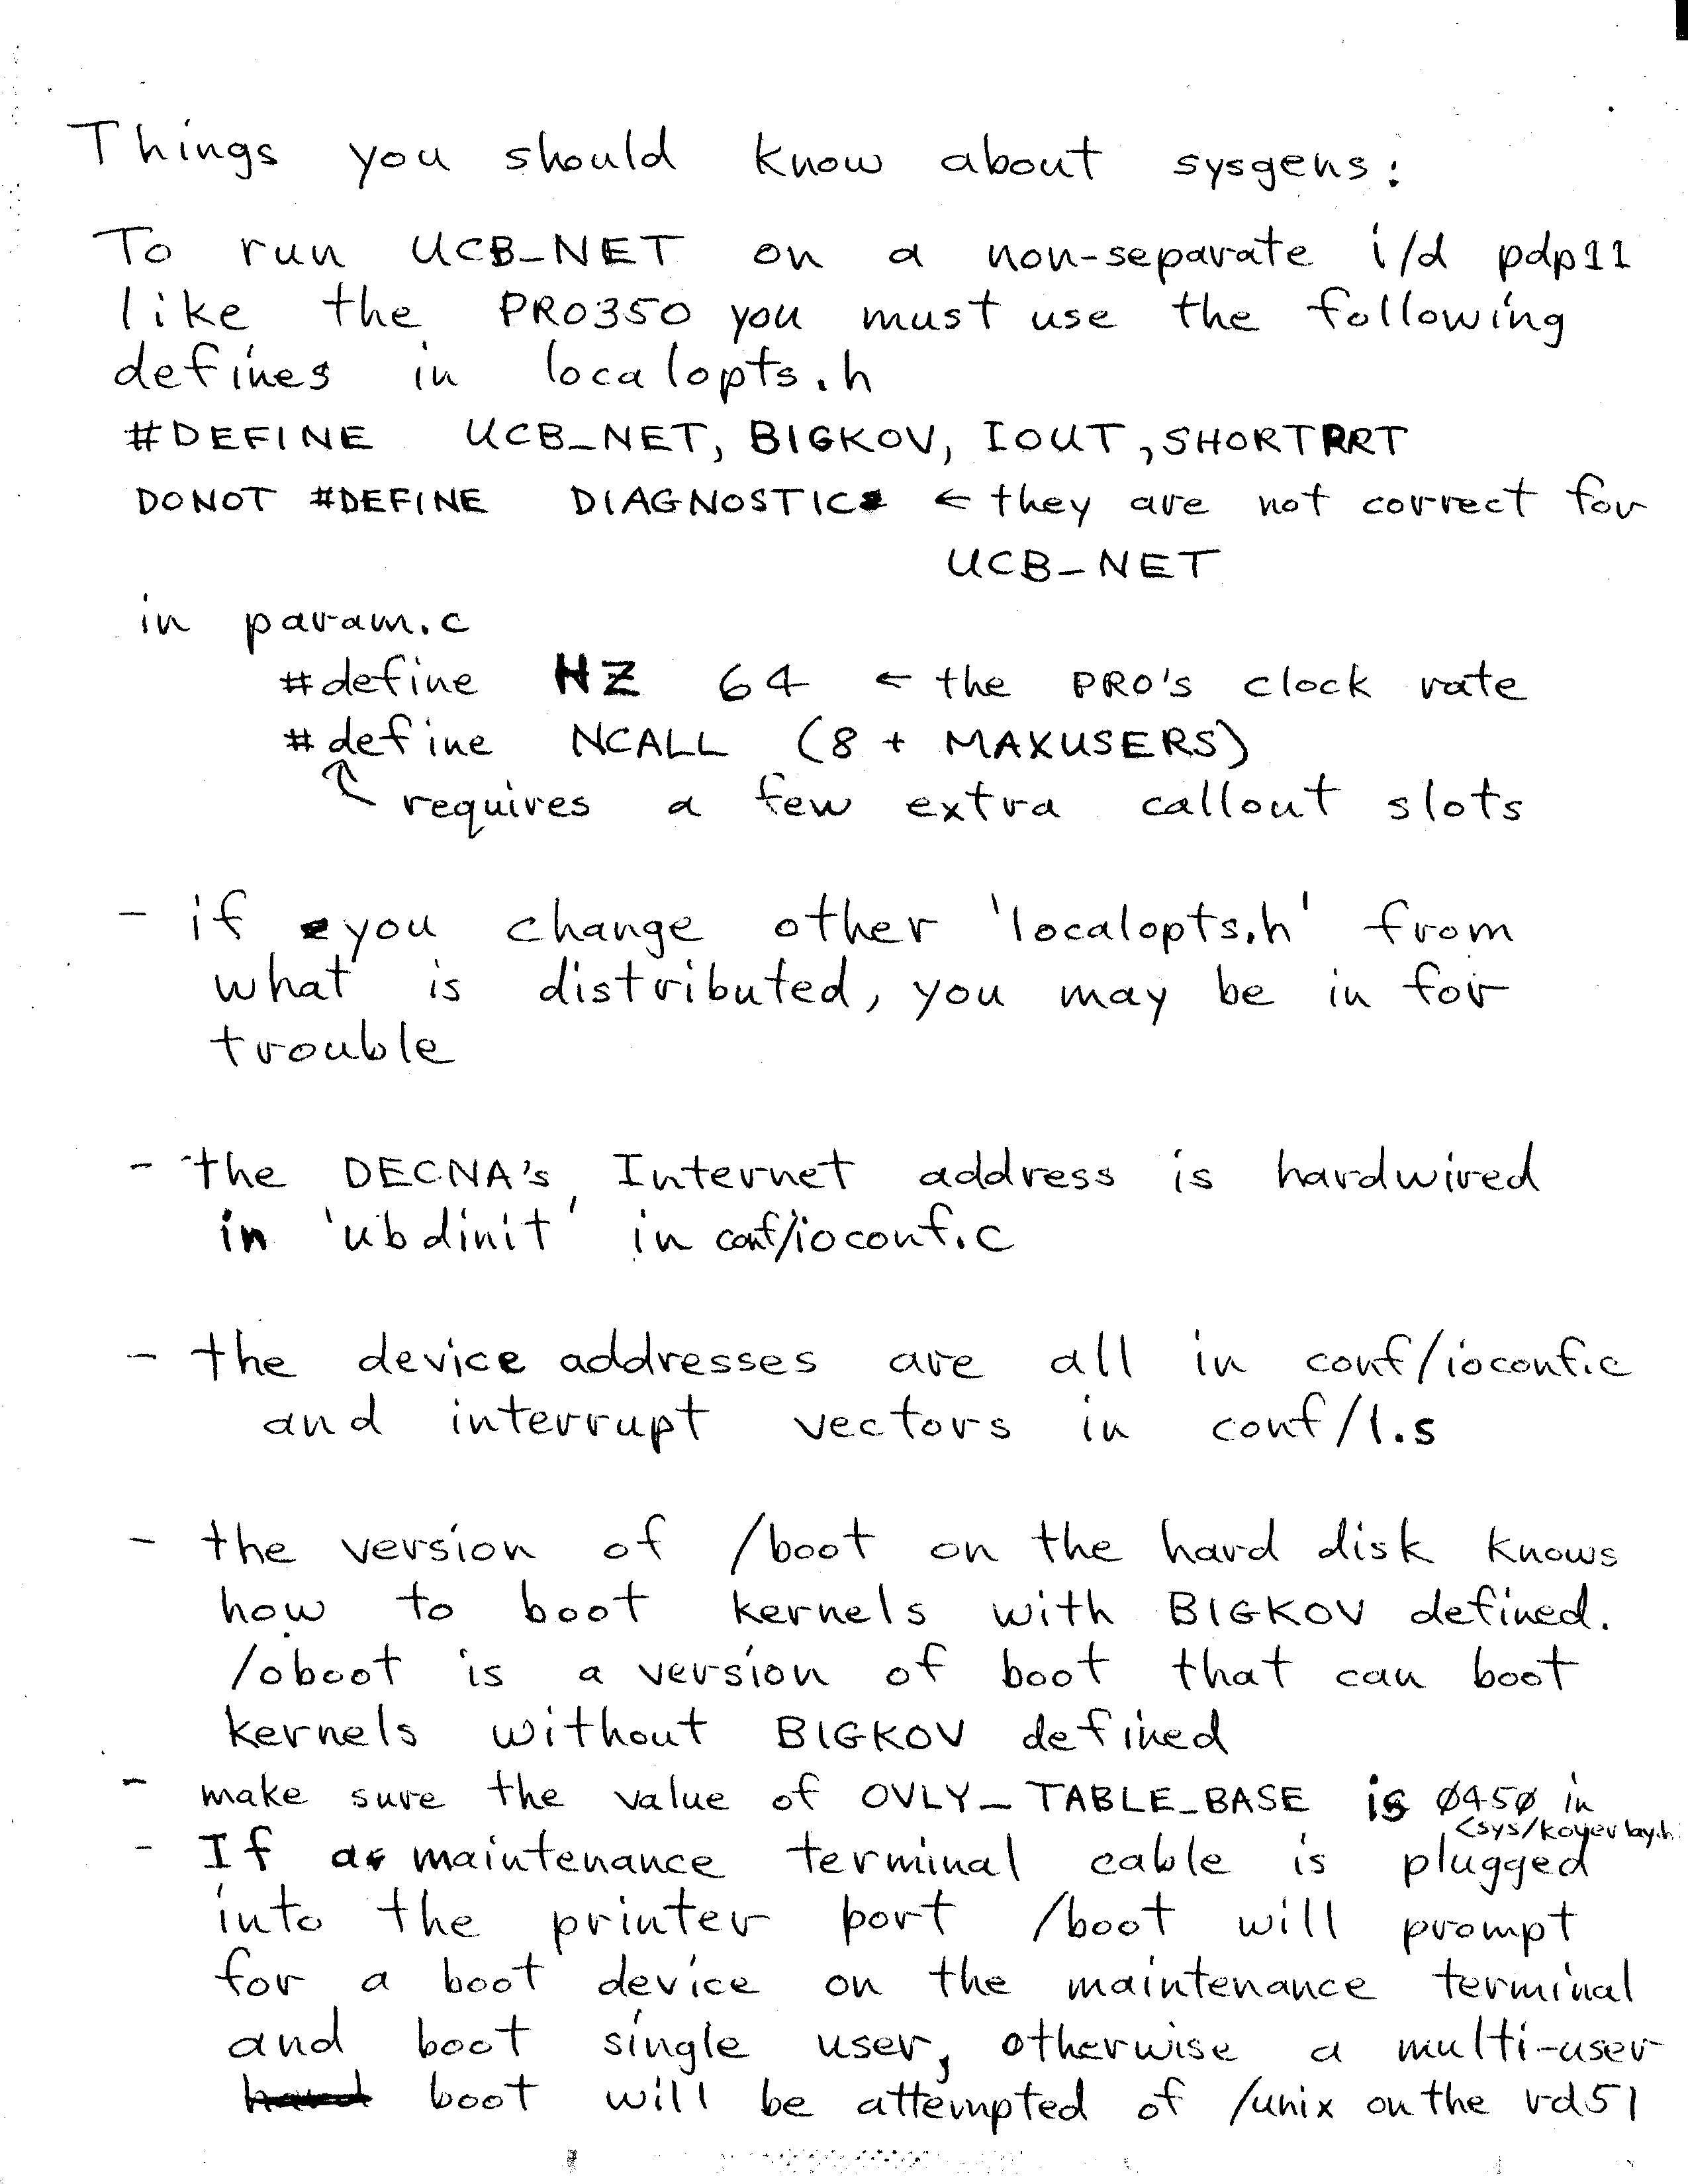 Things you should know about sysgens:
To run UCB_NET on a non-separate i/d pdp11
like the PRO350 you must use the following
defines in localopts.h
#DEFINE UCB_NET, BIGKOV, IOUT, SHORTPRT
DONOT #DEFINE DIAGNOSTIC ← they are not correct for
UCB_NET
in param.c
#define HZ 64 ← the PRO's clock rate
#define NCALL (8 + MAXUSERS)
requires a few extra callout slots
- if you change other 'localopts.h' from
what is distributed, you may be in for
trouble
- the DECNA's Internet address is hardwired
in 'ubdinit' in conf/ioconf.c
- the device addresses are all in conf/ioconf.c
and interrupt vectors in conf/l.s
- the version of /boot on the hard disk knows
how to boot kernels with BIGKOV defined.
/oboot is a version of boot that can boot
kernels without BIGKOV defined
- make sure the value of OVLY_TABLE_BASE is 0450 in
<sys/koverlay.h
- If a maintenance terminal cable is plugged
into the printer port /boot will prompt
for a boot device on the maintenance terminal
and boot single user, otherwise a multi-user
boot will be attempted of /unix on the rd51